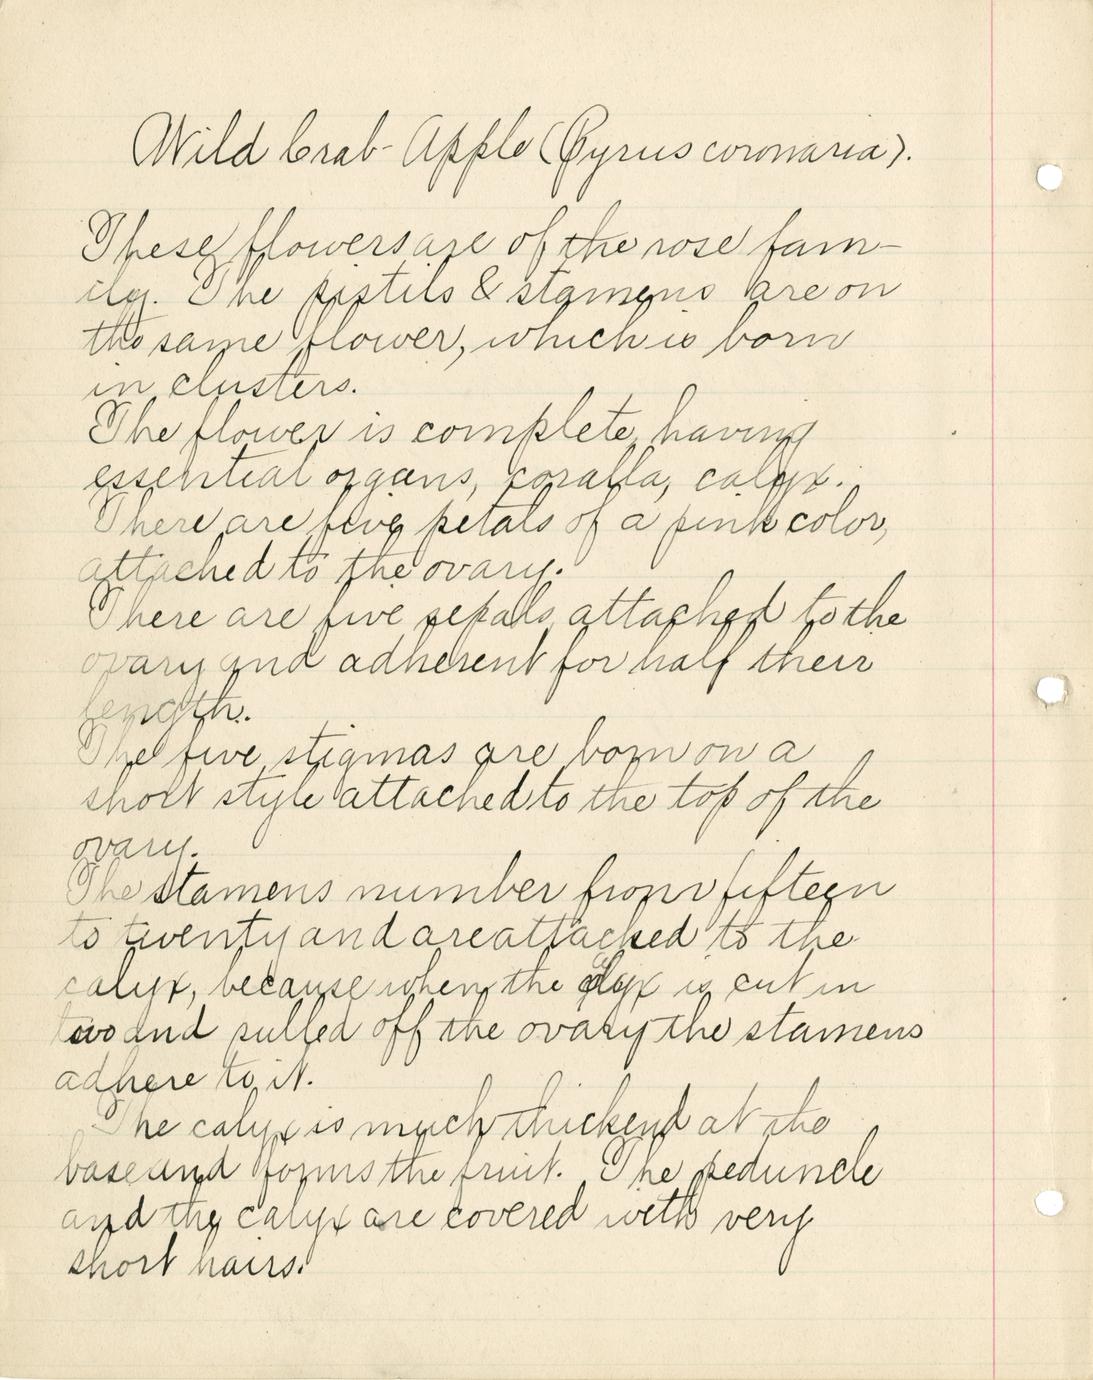 Wild Crab-Apple (Pyrus coronaria).
These flowers are of the rose fam-
ily. The pistils & stamens are on
the same flower, which is born
in clusters.
The flower is complete, having
essential organs, coralla, calyx.
There are five petals of a pink color,
attached to the ovary.
There are five sepals, attached to the
ovary and adherent for half their
length.
The five stigmas are born on a
short style attached to the top of the
ovary.
The stamens number from fifteen
to twenty and are attacked to the
calyx, because when the calyx is cut in
two and pulled off the ovary the stamens
adhere to it.
The calyx is much thickend at the
base and forms the fruit. The peduncle
and the calyx are covered with very
short hairs.